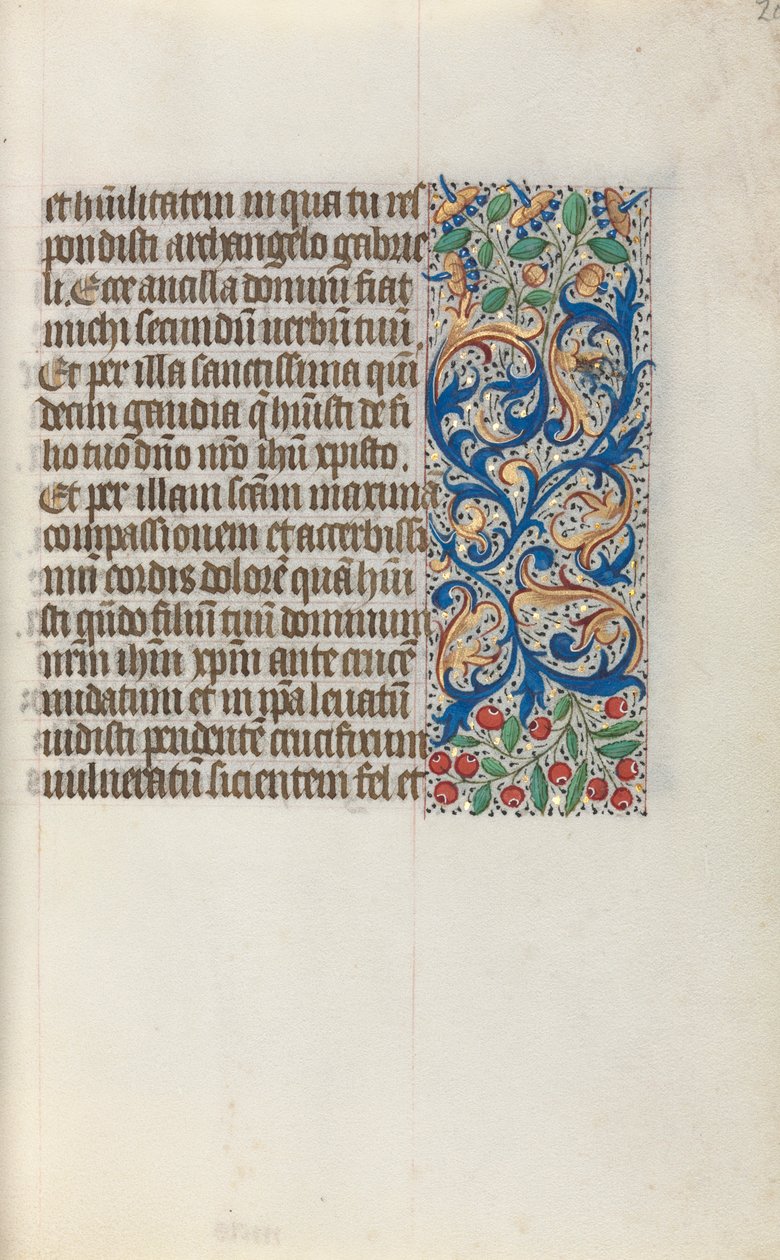 20
et hūilitatem in qua tu res
pondisti archangelo gabrie
li. Ecce ancilla domini fiat
michi secundū uerbū tuū.
Et per illa sanctissima quī
decim gaudia q̄ hūisti de fi
lio tuo dn̄o nr̄o ihū xp̄isto.
Et per illam scām maxima
compassionem et acerbissi
mū cordis dolorē quā hūi
sti qn̄do filiū tuū dominum
nr̄m ihm̄ xp̄m ante crucē
nudatum et in ip̄a leuatū
uidisti pendentē crucifixum
uulneratū sicientem fel et